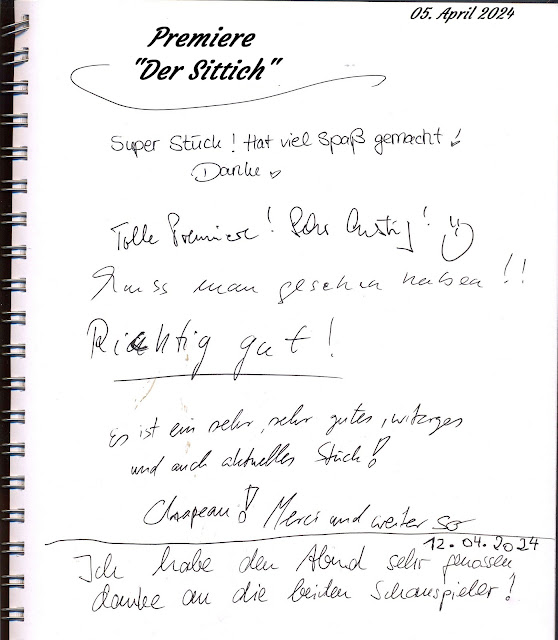 05. April 2024
Premiere
"Der Sittich"
Super Stück! Hat viel Spaß gemacht!
Danke
Tolle Premiere! Sehr lustig!
Muss man gesehen haben!!
Richtig gut!
Es ist ein sehr, sehr gutes, witziges
und auch aktuelles Stück!
Chapeau! Merci und weiter so
12.04.2024
Ich habe den Abend sehr genossen
danke an die beiden Schauspieler!